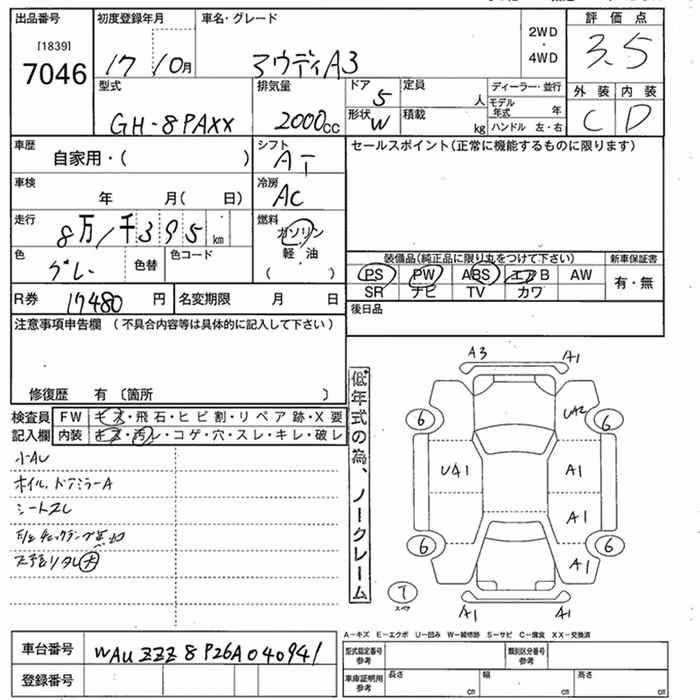 出品番号 初度登録年月 車名・グレード 2WD・4WD 評価点
[1839]
7046 17 10月 アウディA3 3.5
型式 排気量 ドア 定員 ディーラー・並行 外装 内装
GH-8PAXX 2000cc 5 人 モデル年式 年 C D
形状 W 積載 kg ハンドル 左・右
車歴 シフト セールスポイント(正常に機能するものに限ります)
自家用・( ) AT
車検 冷房
年 月( 日) AC
走行 燃料
8万1千395km ガソリン
軽油
( )
色 色替 色コード 装備品(純正品に限り丸をつけて下さい) 新車保証書
グレー PS PW ABS エアB AW 有・無
SR ナビ TV カワ
R券 17480円 名変期限 月 日 後日品
注意事項申告欄 (不具合内容等は具体的に記入して下さい)
修復歴 有 〔箇所 〕
検査員 FW キズ・飛石・ヒビ割・リペア跡・X要
記入欄 内装 キズ・汚レ・コゲ・穴・スレ・キレ・破レ
小AU
ホイル、ドアミラーA
シートスレ
大
低年式の為、ノークレーム
A3 A1
6 UA2 6
UA1 A1
A1
6 A1 6
7
スペア
A1 A1
A-キズ E-エクボ U-凹み W-補修跡 S-サビ C-腐食 XX-交換済
車台番号 WAUZZZ8P26A040941
型式指定番号 参考 類別区分番号 参考
登録番号 車庫証明用 参考 長さ cm 幅 cm 高さ cm